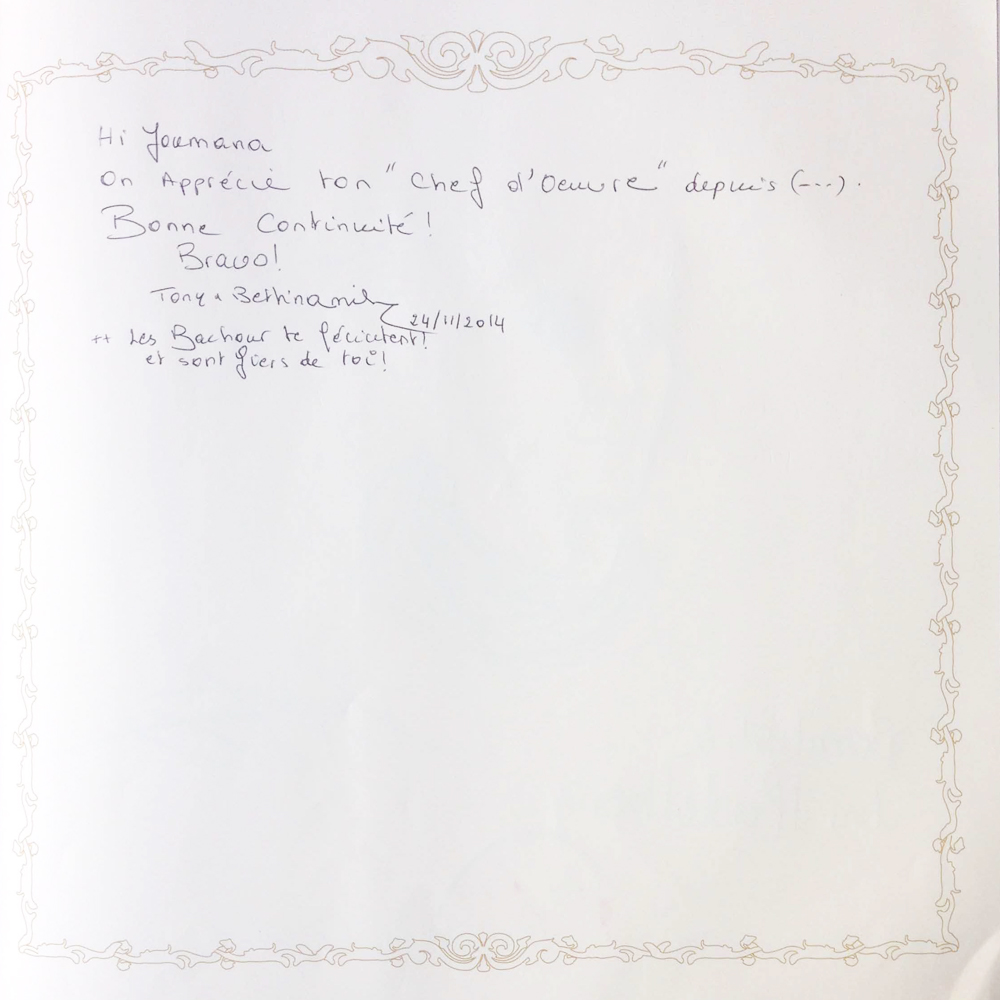 Hi Joumana
On Apprécie ton "Chef d'Oeuvre" depuis (---).
Bonne Continuité!
Bravo!
Tony &
24/11/2014
++ Les Bachour te félicitent!
et sont fiers de toi!